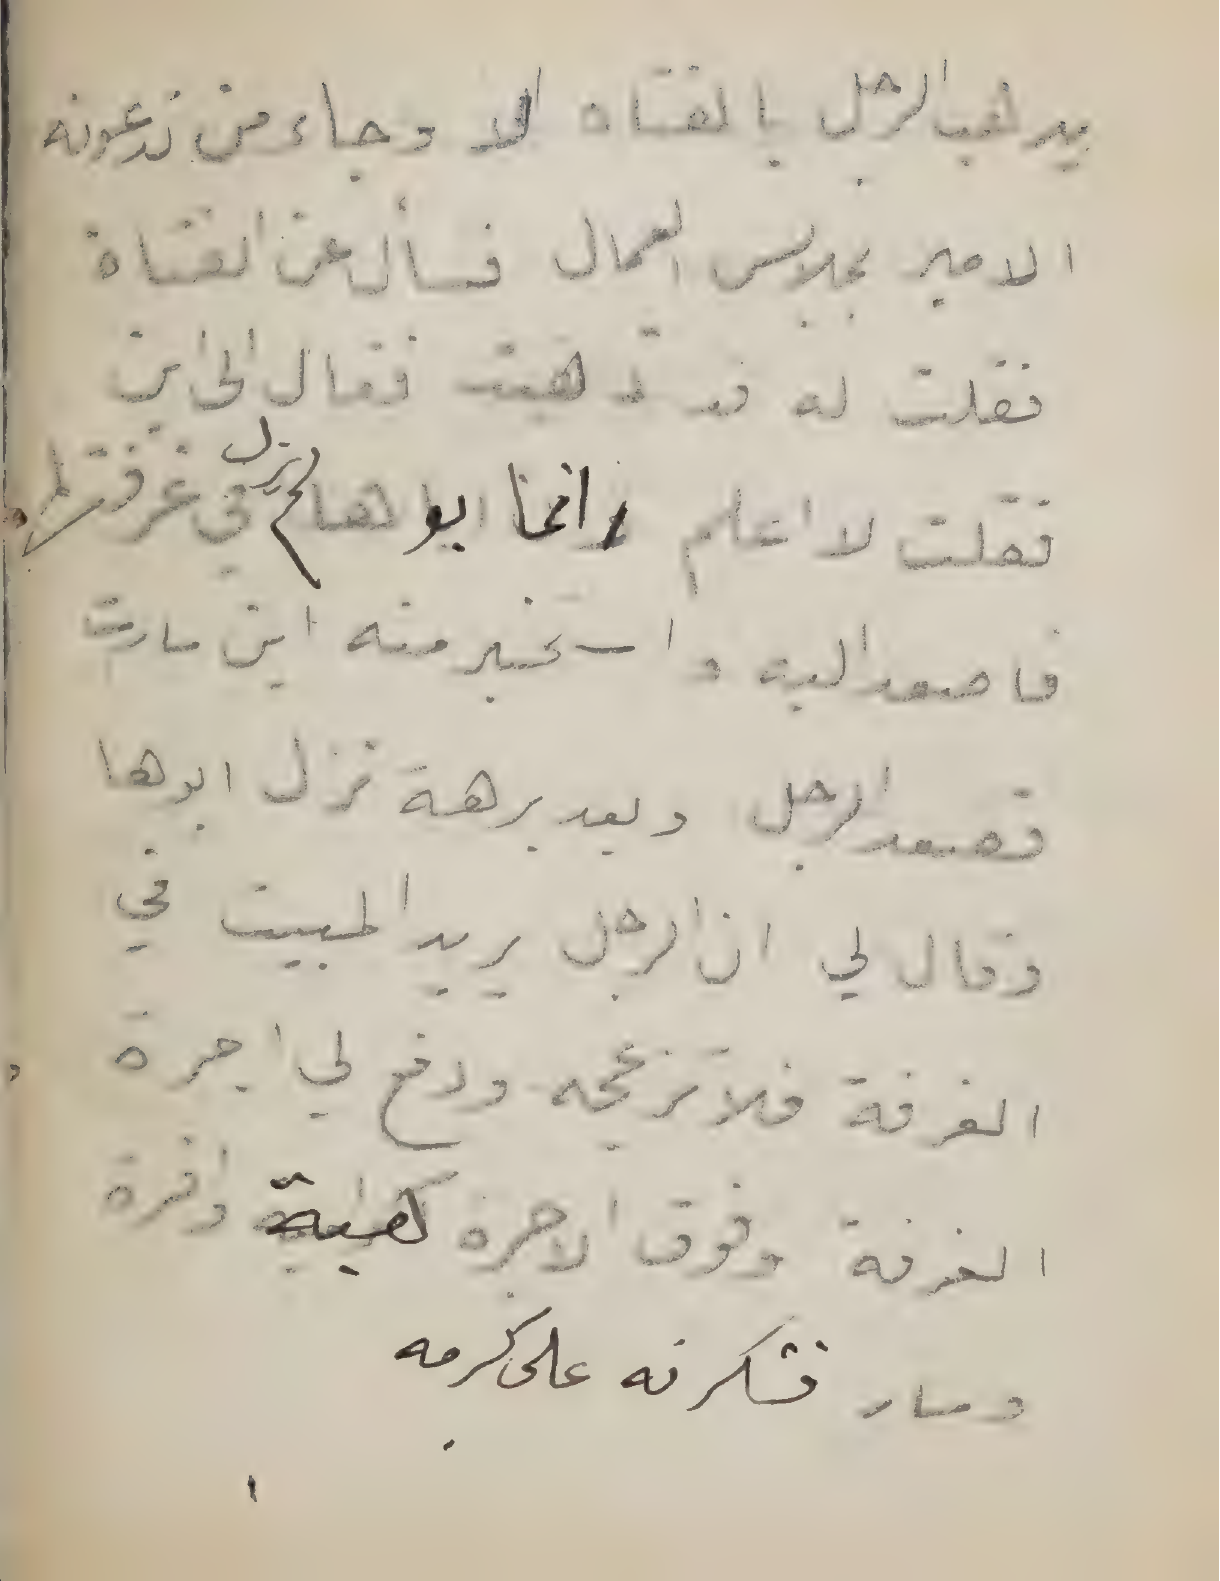 يذهب الرجل بالفتاه الا وجاء من تدعونه
الامير بملابس العمال فسأل عن الفتاة
فقلت له قد ذهبت فقال الى اين
فقلت لا اعلم وانما ابوها لم يزل في غرفتهم
فاصعد اليه واستخبر منه اين سارت
فصعد الرجل وبعد برهة نزل ابوها
وقال لي ان الرجل يريد المبيت في
الغرفة فلا تزعجه ودفع لي اجرة
الغرفة وفوق الاجرة وافرة
وسار فشكرته على كرمه